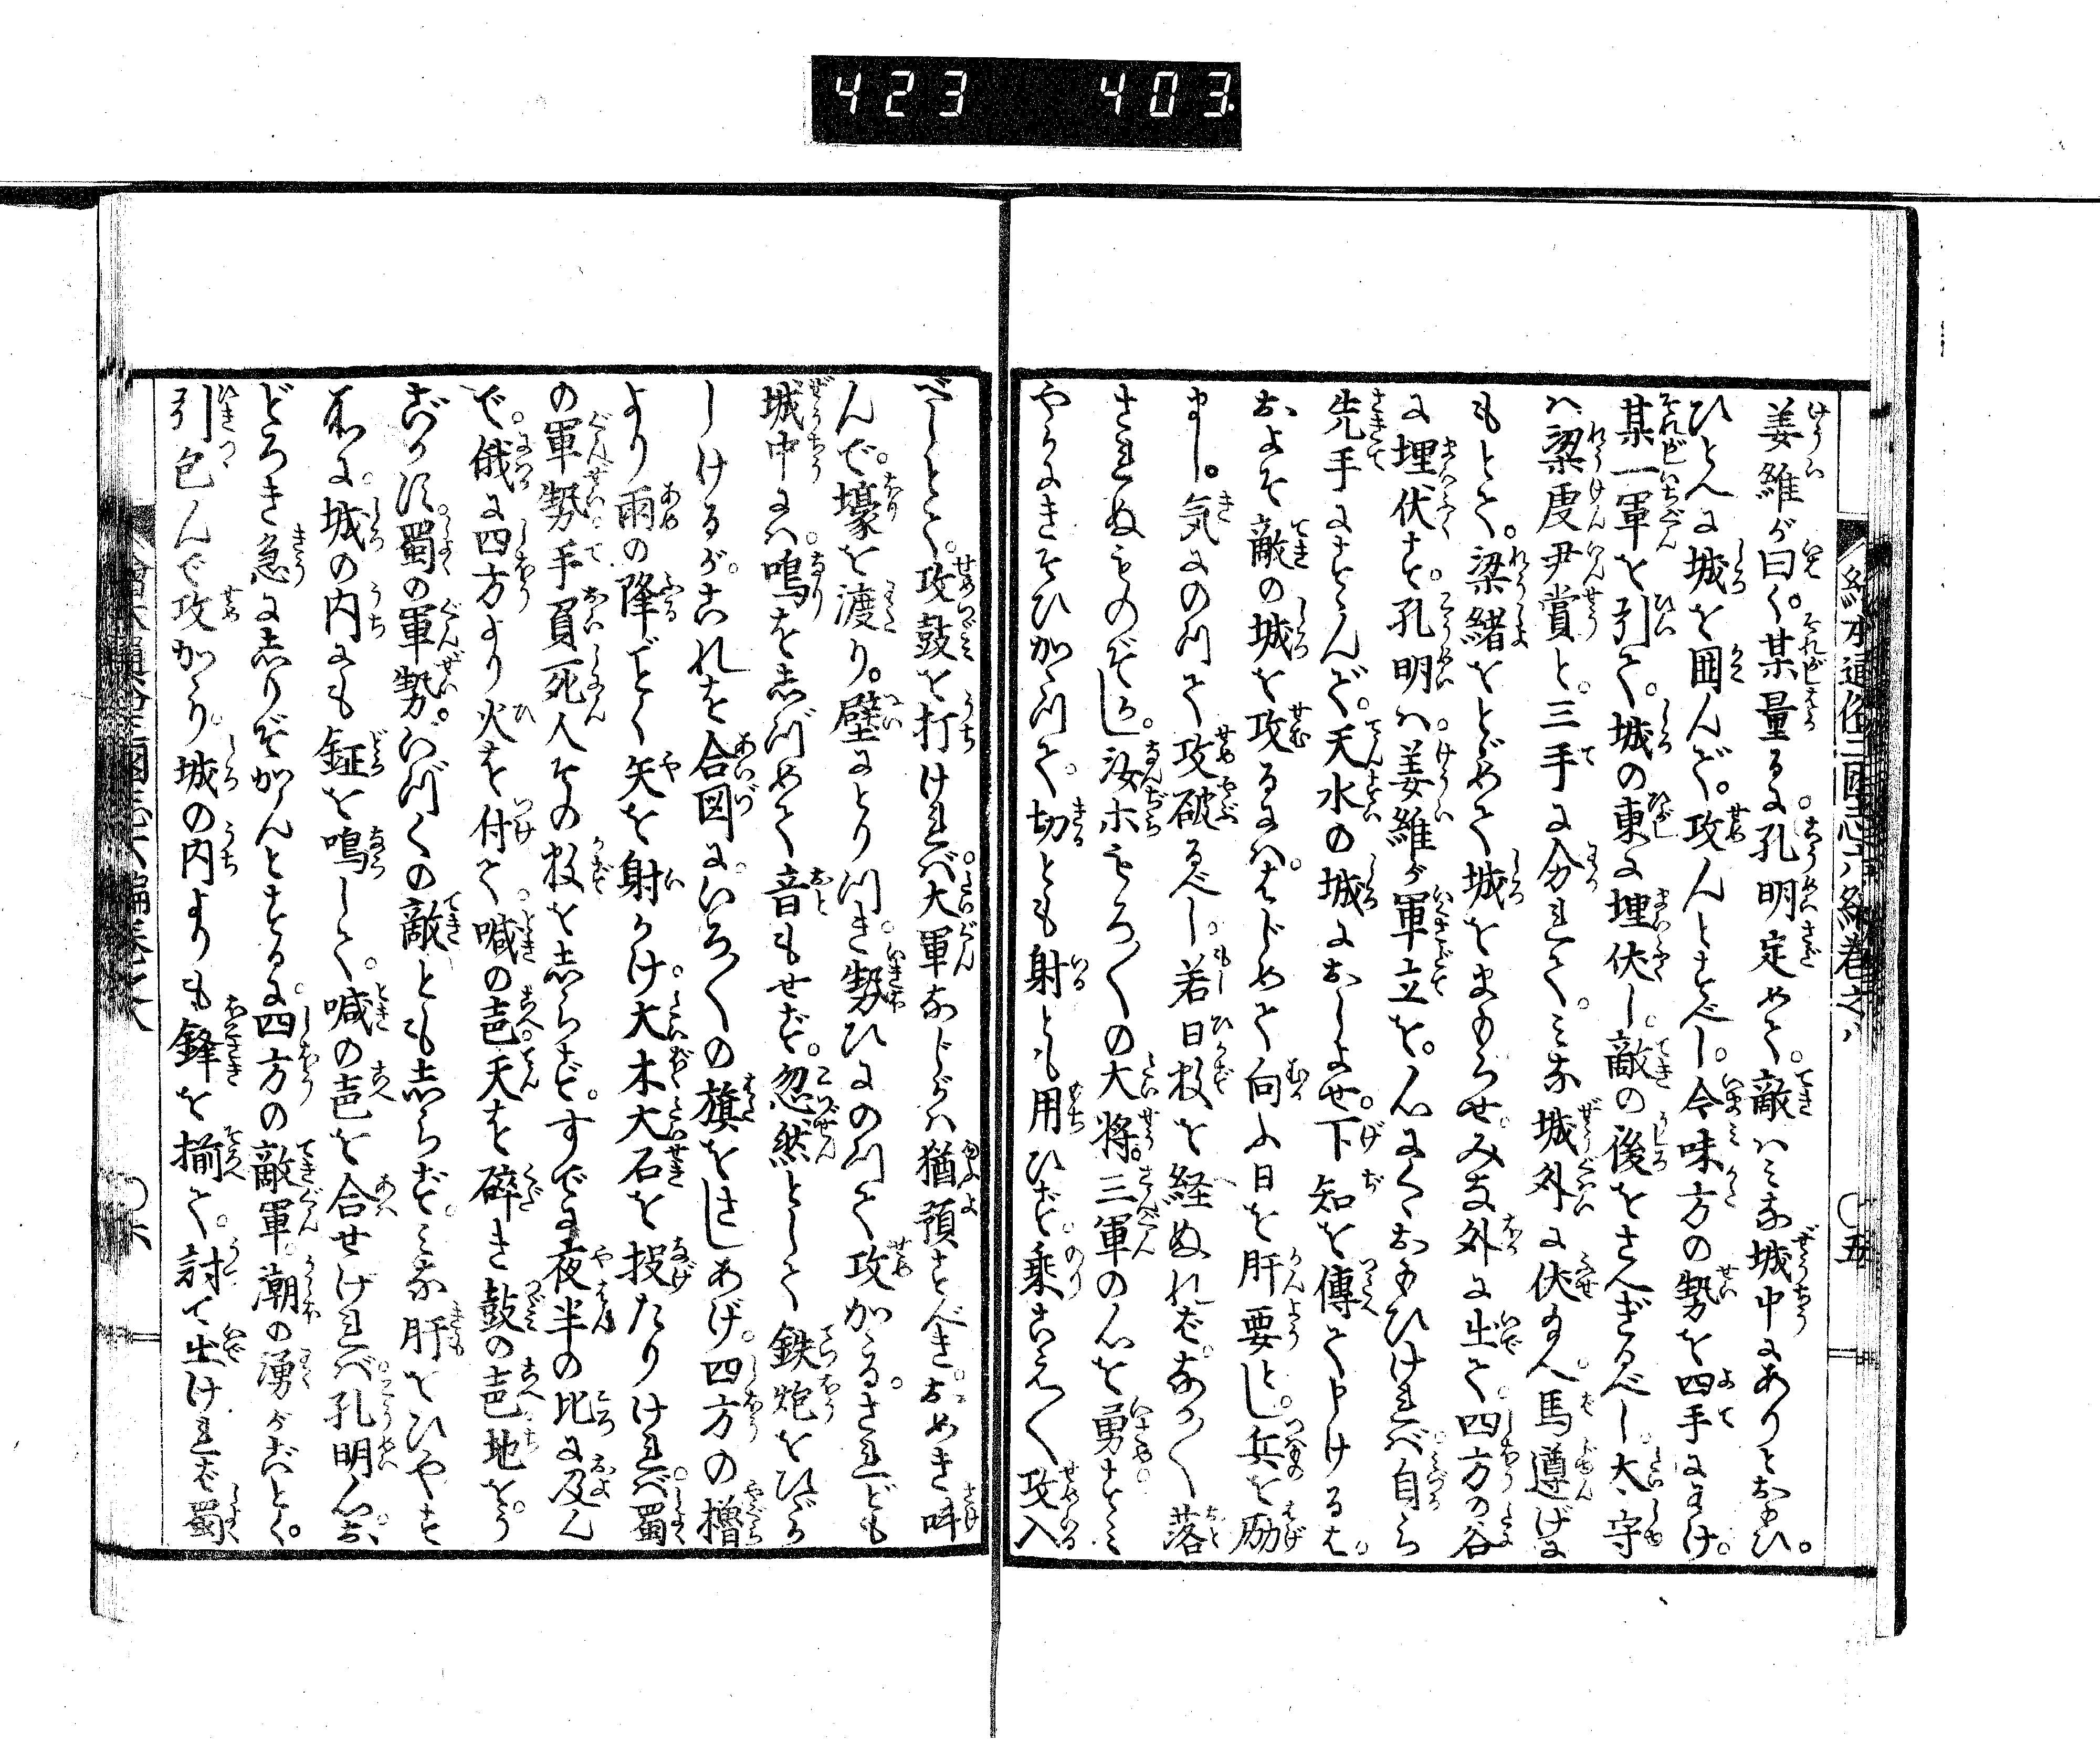 423 403
繪本通俗三國志六編巻之八
五
姜維が曰く。某量るに孔明定めて。敵はみな城中にありとおもひ。
ひとへに城を囲んで。攻んとすべし。今味方の勢を四手にわけ。
某一軍を引て。城の東に埋伏し。敵の後をさへぎるべし。大守
は梁虔尹賞と。三手に分れて。みな城外に伏給へ。馬遵げに
もとて。梁緒をとゞめて城をまもらせ。みな外に出て。四方の谷
に埋伏す。孔明は。姜維が軍立を。心にくゝおもひければ。自ら
先手にすゝんで。天水の城におしよせ。下知を傳て申けるは。
およそ敵の城を攻るには。はじめて向ふ日を肝要とし。兵を励
まし。気にのつて攻破るべし。若日数を経ぬれば。ながく落
されぬものぞかし。汝ホもろ〳〵の大将。三軍の心を勇すゝみ
やりにきそひかゝつて。切とも射とも用ひず。乗こえ〳〵攻入
べしとて。攻鼓を打ければ。大軍なじかは猶預すべき。おめき呌
んで。壕を渡り。壁にとりつき。勢ひにのつて攻かゝる。されども
城中には。鳴をしづめて音もせず。忽然として鉄炮をひゞか
しけるが。これを合図に。いろ〳〵の旗をさしあげ。四方の櫓
より雨の降ごとく矢を射かけ。大木大石を投たりければ。蜀
の軍勢手負死人その数をしらず。すでに夜半の比に及ん
で。俄に四方より火を付て。喊の声。天を碎き鼓の声地をう
ごかす。蜀の軍勢。いづくの敵ともしらず。みな肝をひやす
所に。城の内にも鉦を鳴して。喊の声を合せければ。孔明心お
どろき急にしりぞかんとするに。四方の敵軍。潮の湧がごとく。
引包んで攻かゝり。城の内よりも鋒を揃て。討て出ければ蜀
繪本通俗三國志六編巻之八
六